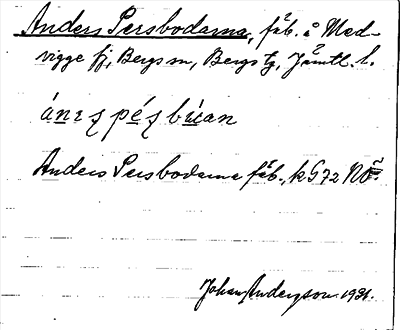 Anders Persbodarna, fäb. å Med-
vigge fj, Bergs sn, Bergs tg, Jämtl. l.
ánęʂ péʂ búan
Anders Persbodarna fäb., k G72 NO
Johan Anderson 1931.